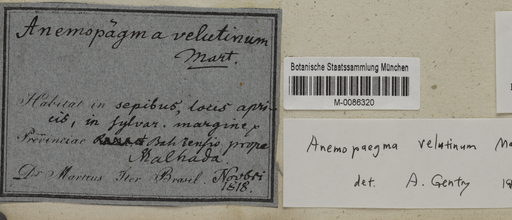 Anemopägma velutinum
Mart.
Habitat in sepibus, locis apri-
cis, in sylvar. margine,
Provinciae Bahiensis prope
Malhada.
Dr Martius Iter Brasil. Novbri
1818.
Botanische Staatssammlung München
M-0086320
Anemopaegma velutinum
det. A. Gentry